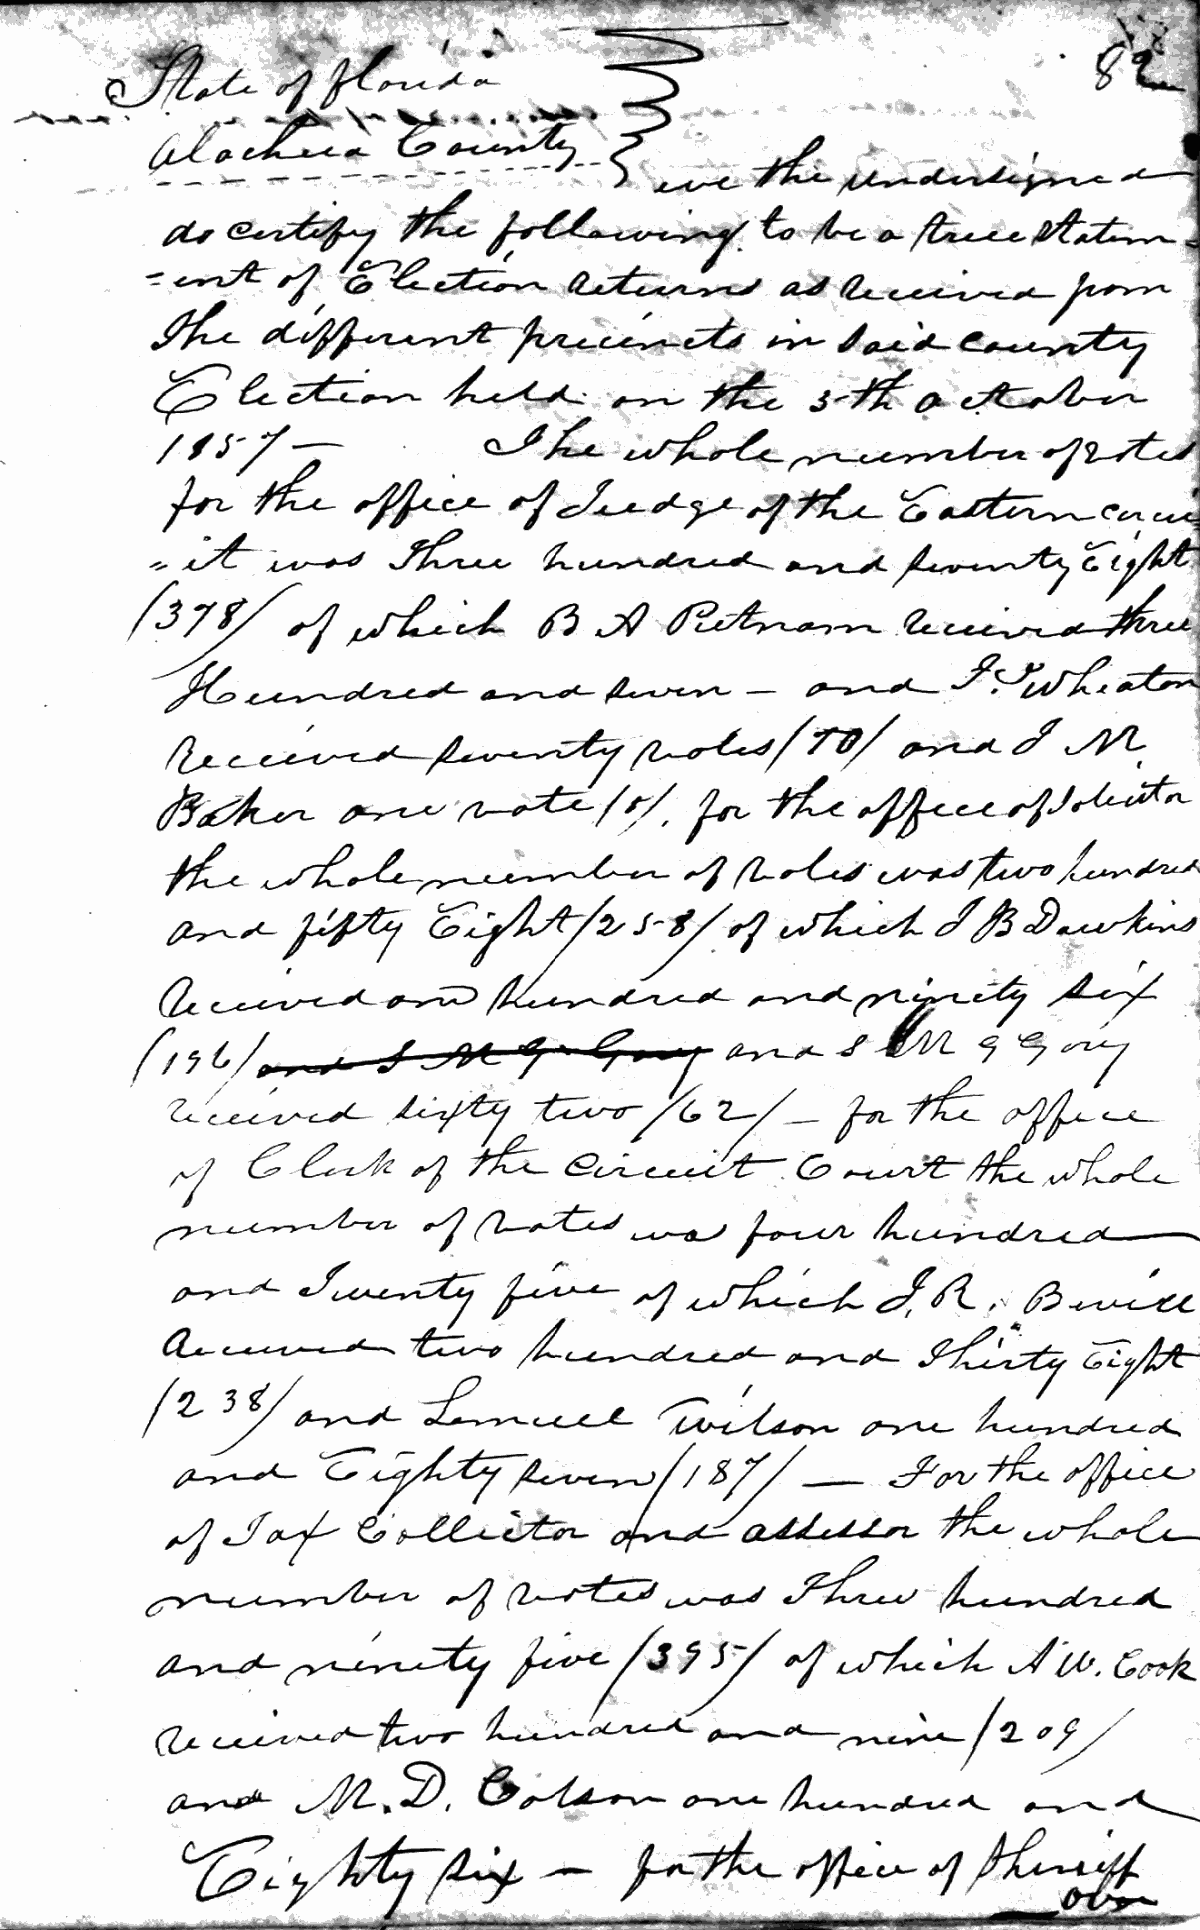 82
State of Florida
Alachua County
we the undersigned
do certify the following to be a true statem=
=ent of Election returns as received from
The different precincts in said county
Election held on the 5th October
1857 — The whole number of votes
for the office of Judge of the Eastern circu=
=it was Three hundred and seventy Eight
(378) of which B A Putnam received three
Hundred and seven — and F. I Wheaton
received seventy votes (70) and J M
Baker one vote (1). for the office of Solicitor
the whole number of votes was two hundred
and fifty Eight (258) of which J B Dawkins
received one hundred and ninety six
(196) and S M G Gary and S M G Gory
received sixty two (62) — for the office
of Clerk of the Circuit Court the whole
number of votes was four hundred
and Twenty five of which J. R. Bevill
received two hundred and Thirty Eight
(238) and Lemuell Wilson one hundred
and Eighty seven (187) — For the office
of Tax Collector and assessor the whole
number of votes was Three hundred
and ninety five (395) of which A W. Cook
received two hundred and nine (209)
and M. D. Colson one hundred and
Eighty six — for the office of Sheriff
over